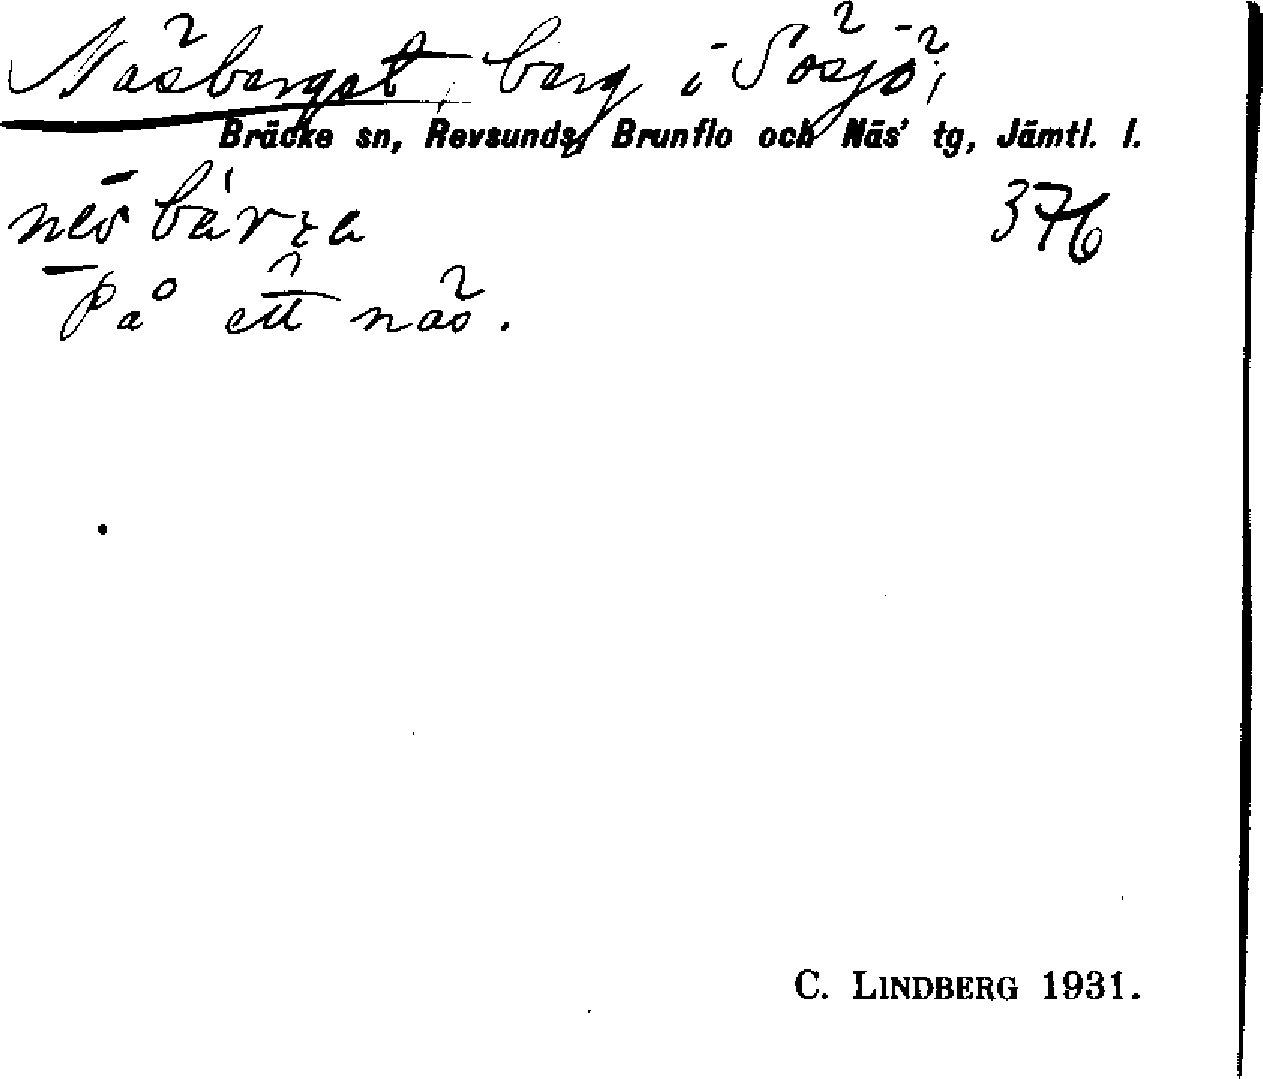 Näsberget, berg i Sösjö,
Bräcke sn, Revsunds, Brunflo och Näs' tg, Jämtl. l.
376
På ett näs.
C. LINDBERG 1931.